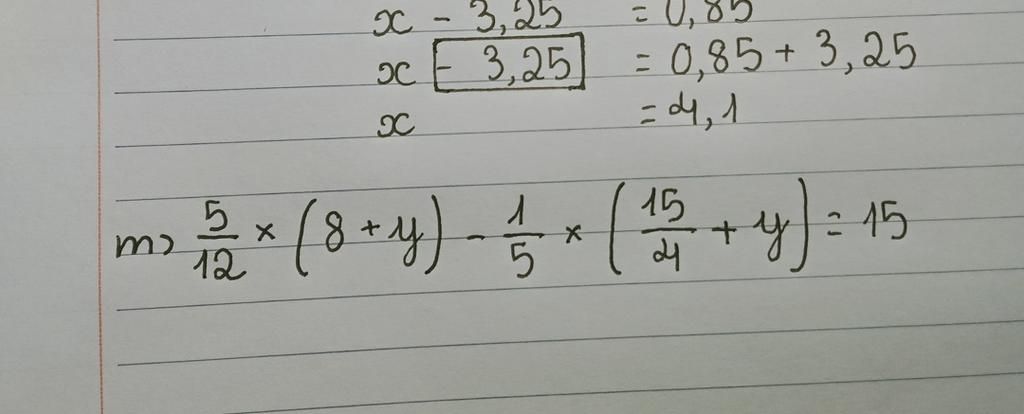 x - 3,25 = 0,85
x - 3,25 = 0,85 + 3,25
x = 4,1
m) 5/12 × (8 + y) - 1/5 × (15/4 + y) = 15